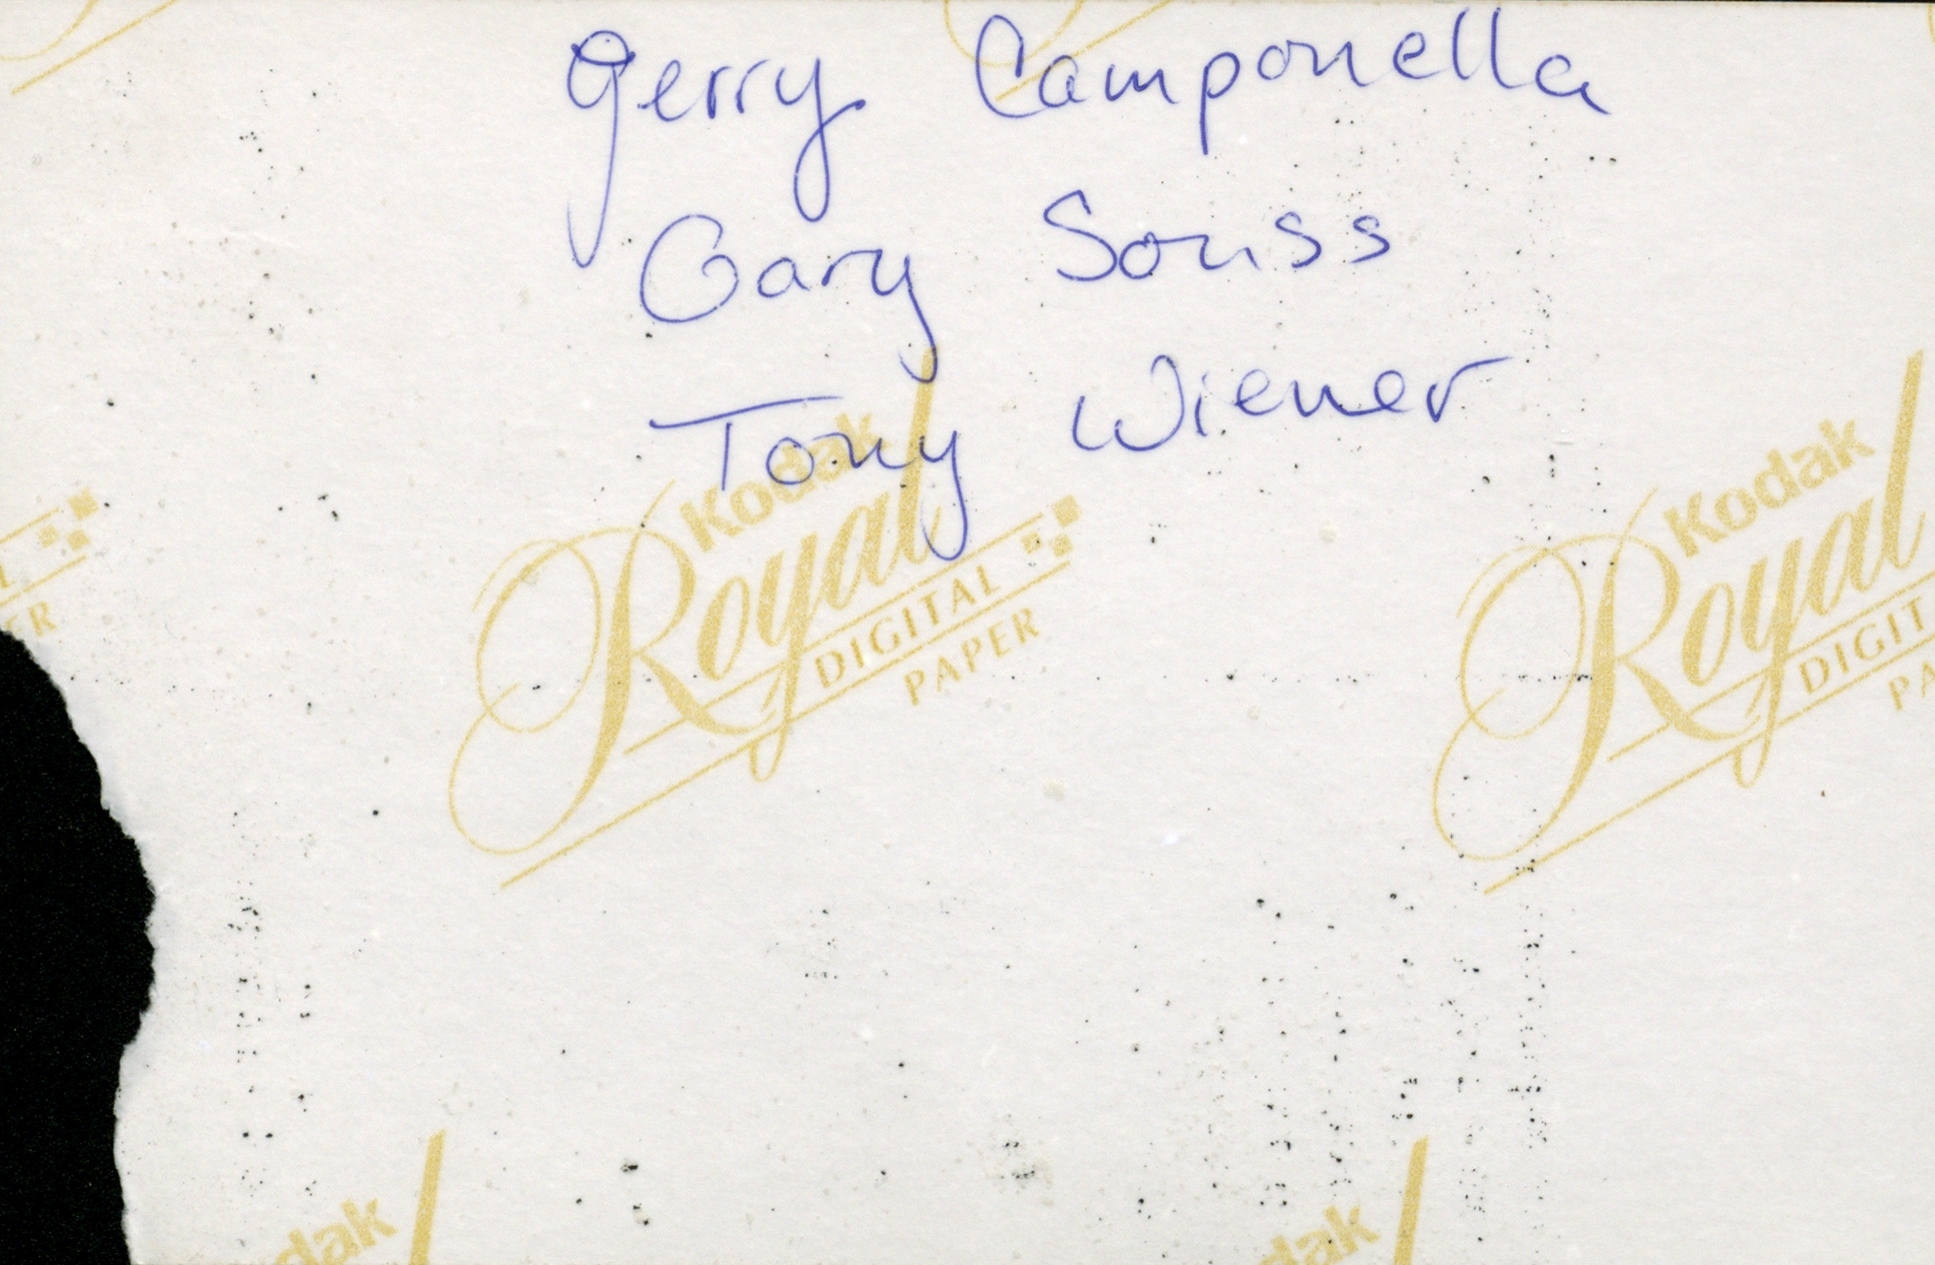 Gerry Camponella
Gary Souss
Tony Wiener
Kodak
Royal
DIGITAL
PAPER
Kodak
Royal
DIGIT
PA
ER
dak
dak